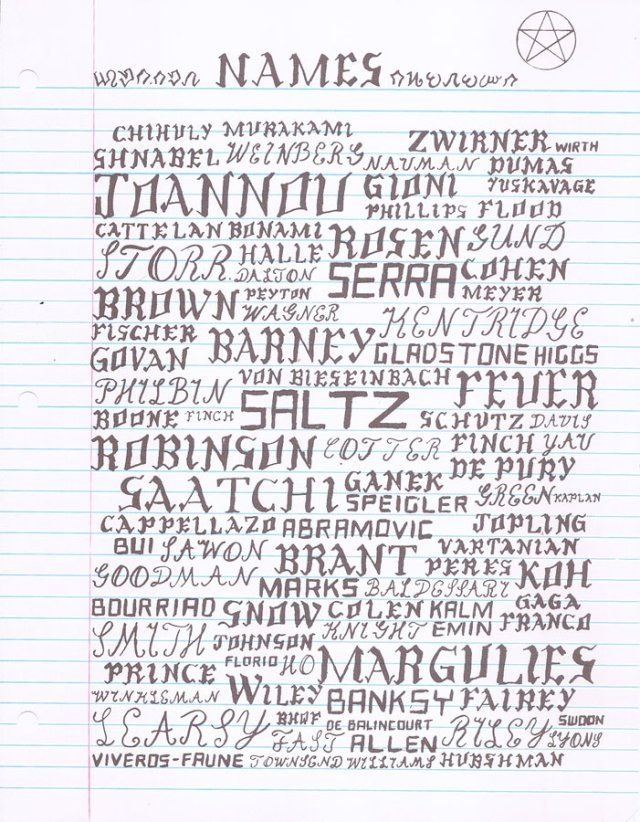 NAMES
CHIHULY MURAKAMI ZWIRNER WIRTH
SHNABEL WEINBERG NAUMAN DUMAS
JOANNOU GIONI YUSKAVAGE
PHILLIPS FLOOD
CATTELAN BONAMI ROSEN GUND
STORR HALLE DALTON SERRA COHEN
BROWN PEYTON WAGNER MEYER
FISCHER BARNEY KENTRIDGE
GOVAN GLADSTONE HIGGS
PHILBIN VON BIESEINBACH FEUER
BOONE FINCH SALTZ SCHUTZ DAVIS
ROBINSON COTTER FINCH YAU
SAATCHI GANEK DE PURY
SPEIGLER GREEN KAPLAN
CAPPELLAZO ABRAMOVIC JOPLING
BUI SAWON BRANT VARTANIAN
GOODMAN PERES KOH
MARKS BALDESSARI
BOURRIAD SNOW COLEN KALM GAGA
SMITH JOHNSON KNIGHT EMIN FRANCO
PRINCE FLORIO HO MARGULIES
WINKLEMAN WILEY BANKSY FAIREY
LEARSY BHWF DE BALINCOURT RILEY SWOON
FAST ALLEN LYONS
VIVEROS-FAUNE TOWNSEND WILLIAMS HUBSHMAN